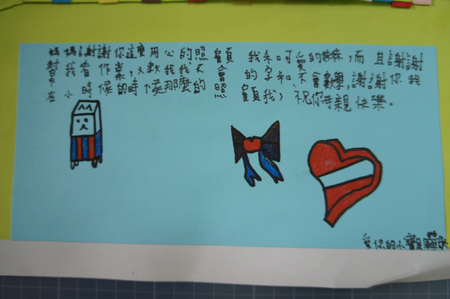 媽媽謝謝你這麼用心的照顧我和可愛的妹妹,而且謝謝
幫我看作業,教我我不會的字和不會數學,謝謝你我
在小時候的時候那麼的照顧我,祝你母親佳樂。
愛你的小